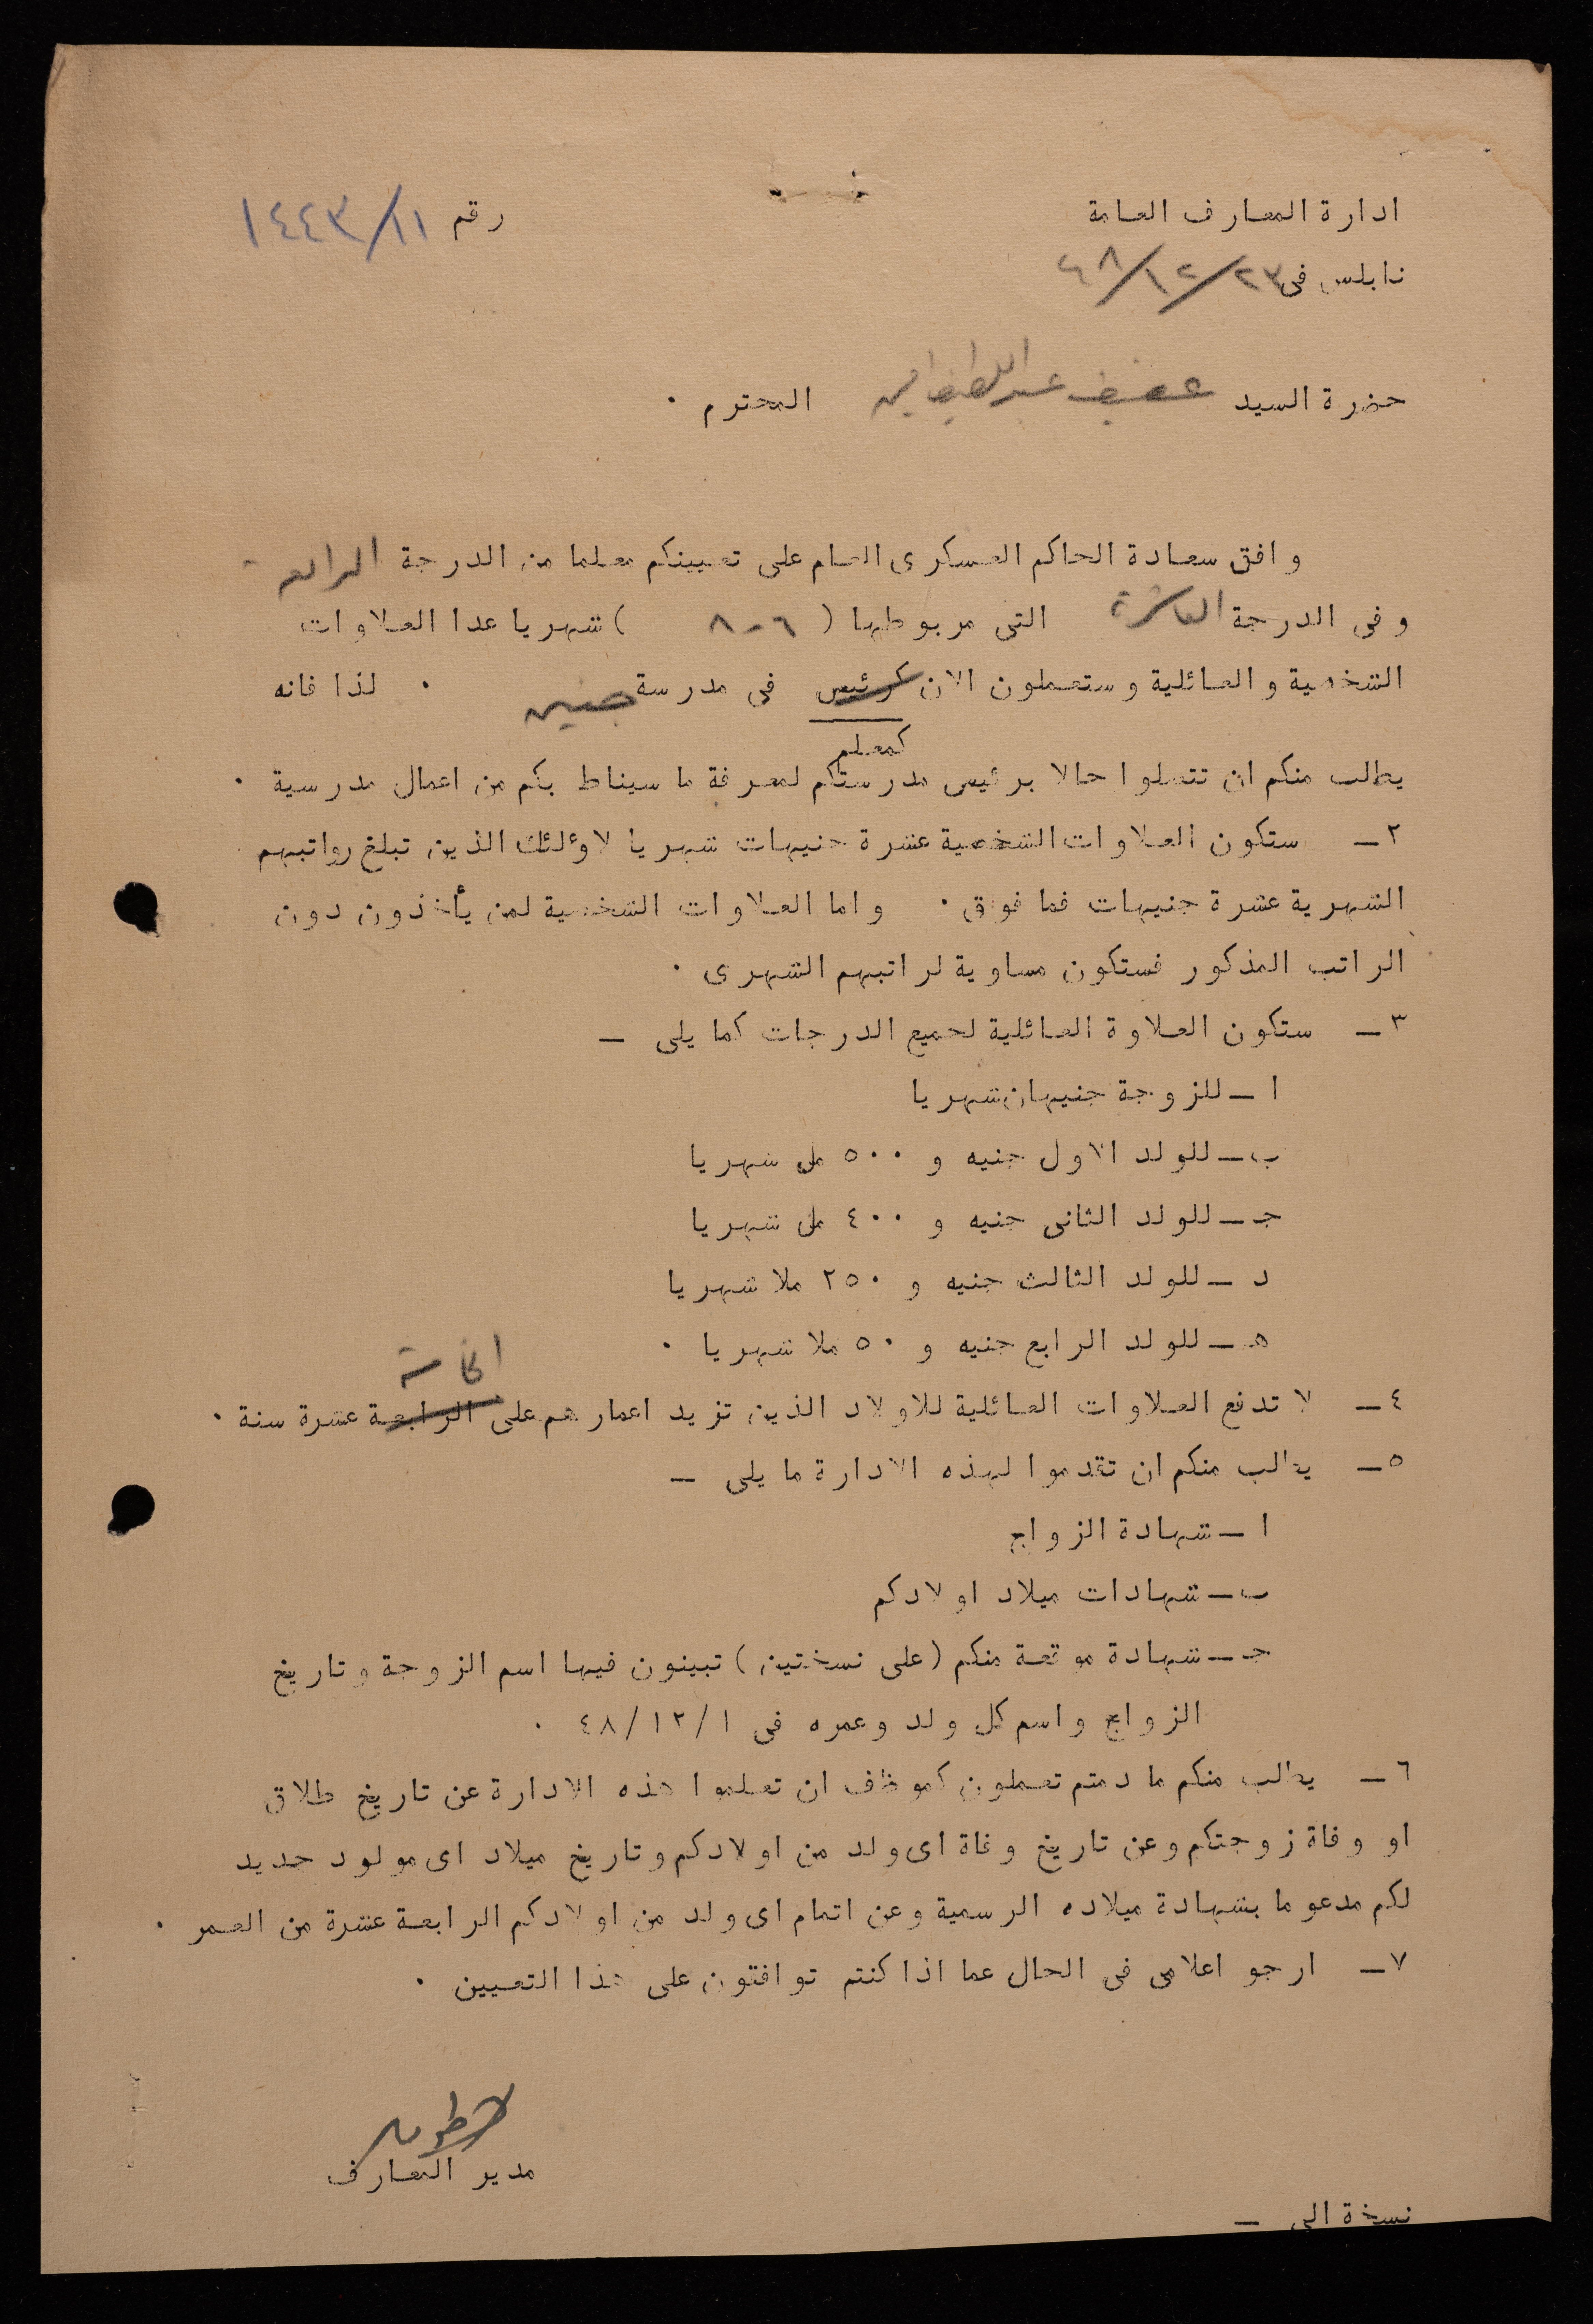 ادارة المعارف العامة
رقم ١١/١٤٤٣
نابلس فى ٢٣/١٢/٤٨
حضرة السيد عفيف عبد اللطيف المحترم ٠
وافق سعادة الحاكم العسكرى العام على تعيينكم معلما من الدرجة الرابعة
وفى الدرجة العاشرة التى مربوطها ( ٦-٨ ) شهريا عدا العلاوات
الشخصية والعائلية وستعملون الان كرئيس فى مدرسة جنين ٠ لذا فانه
كمعلم
يطلب منكم ان تتصلوا حالا برئيس مدرستكم لمعرفة ما سيناط بكم من اعمال مدرسية ٠
٢ـ ستكون العلاوات الشخصية عشرة جنيهات شهريا لاولئك الذين تبلغ رواتبهم
الشهرية عشرة جنيهات فما فوق ٠ واما العلاوات الشخصية لمن يأخذون دون
الراتب المذكور فستكون مساوية لراتبهم الشهرى ٠
٣ـ ستكون العلاوة العائلية لجميع الدرجات كما يلى ـ
ا ـ للزوجة جنيهان شهريا
ب ـ للولد الاول جنيه و ٥٠٠ مل شهريا
جـ ـ للولد الثانى جنيه و ٤٠٠ مل شهريا
د ـ للولد الثالث جنيه و ٢٥٠ ملا شهريا
هـ ـ للولد الرابع جنيه و ٥٠ ملا شهريا ٠
الخامسة
٤ـ لا تدفع العلاوات العائلية للاولاد الذين تزيد اعمارهم على الرابعة عشرة سنة ٠
٥ـ يطلب منكم ان تقدموا لهذه الادارة ما يلى ـ
ا ـ شهادة الزواج
ب ـ شهادات ميلاد اولادكم
جـ ـ شهادة موقعة منكم (على نسختين) تبينون فيها اسم الزوجة وتاريخ
الزواج واسم كل ولد وعمره فى ١/١٢/٤٨ ٠
٦ـ يطلب منكم ما دمتم تعملون كموظف ان تعلموا هذه الادارة عن تاريخ طلاق
او وفاة زوجتكم وعن تاريخ وفاة اى ولد من اولادكم وتاريخ ميلاد اى مولود جديد
لكم مدعوما بشهادة ميلاده الرسمية وعن اتمام اى ولد من اولادكم الرابعة عشرة من العمر ٠
٧ـ ارجو اعلامى فى الحال عما اذا كنتم توافقون على هذا التعيين ٠
مدير المعارف
نسخة الى ـ